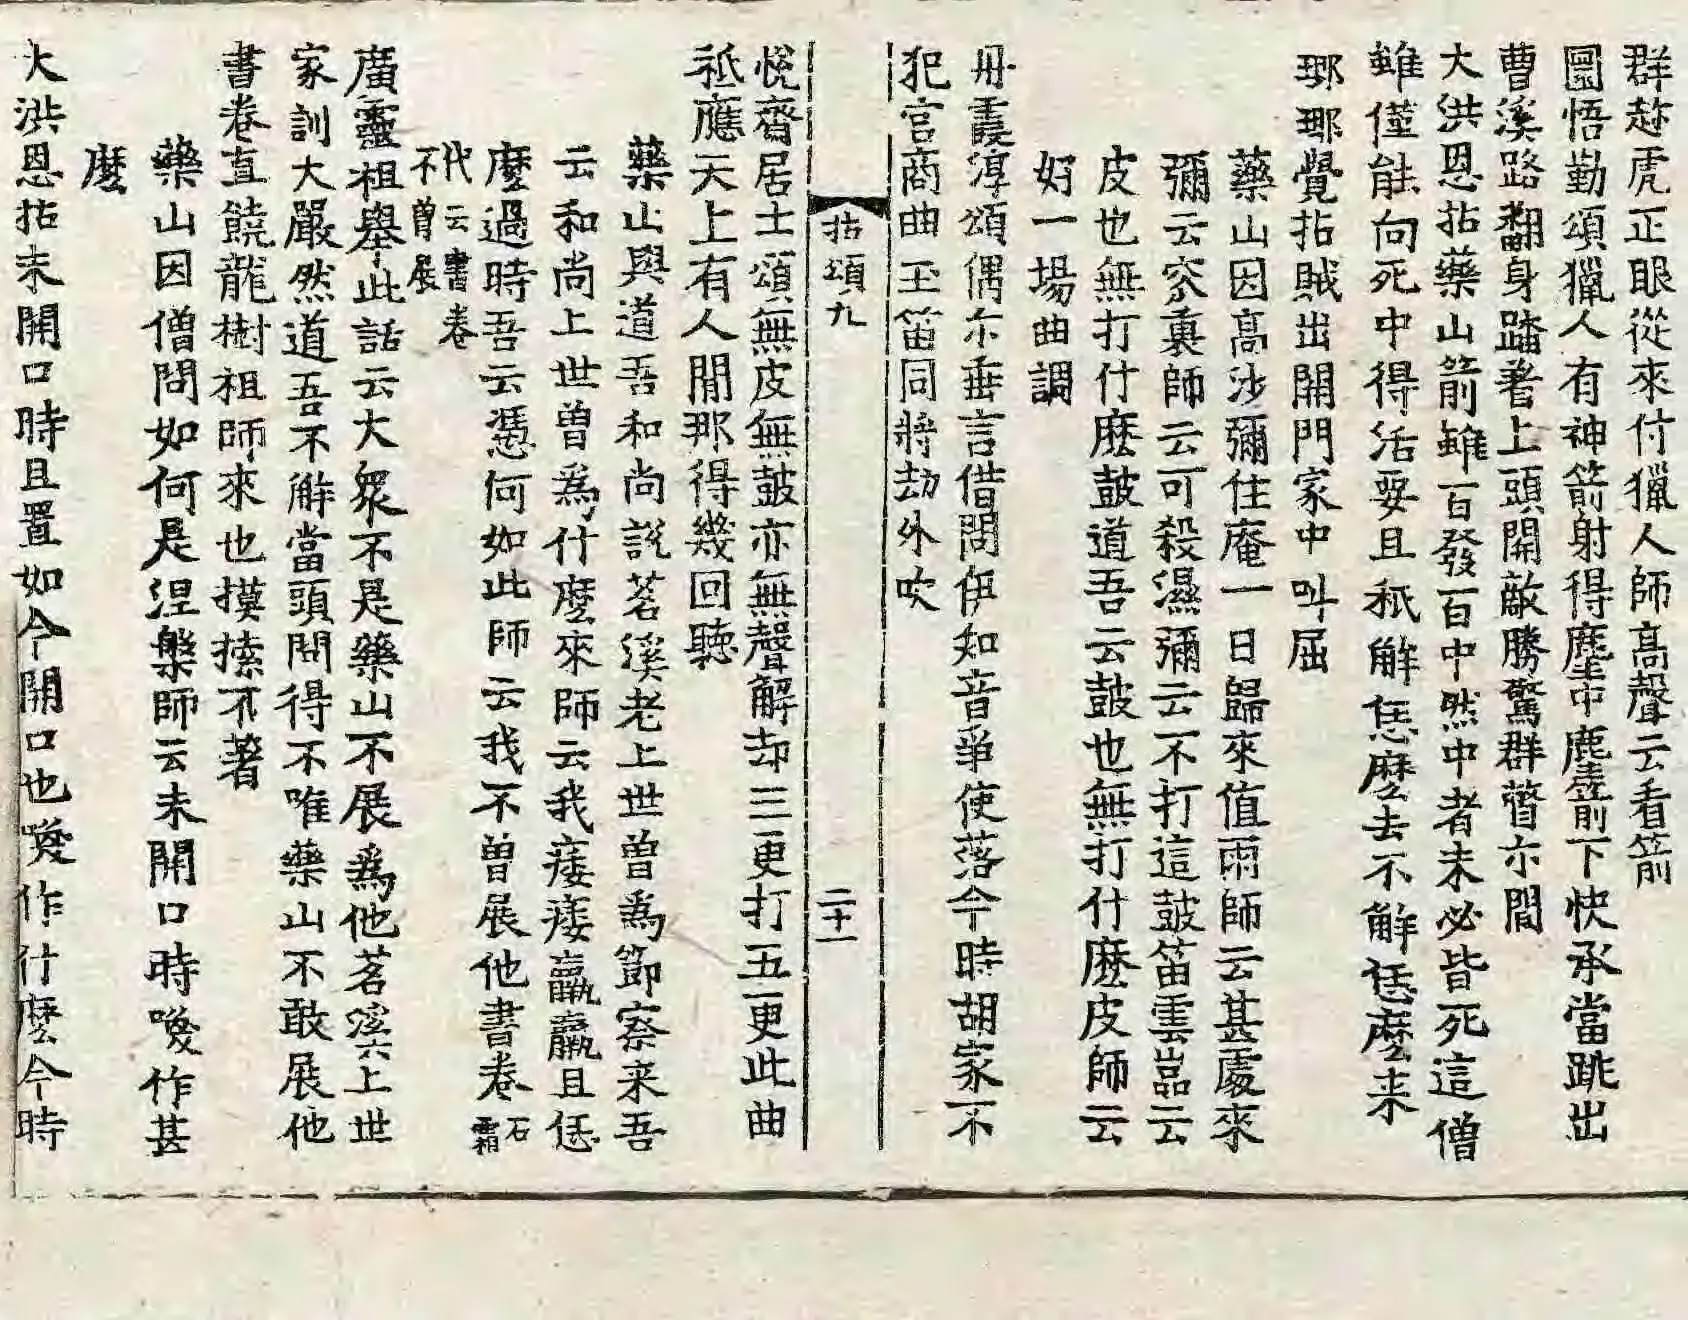 群趂虎正眼從來付獵人師高聲云看箭
圜悟勤頌獵人有神箭射得麈中麈箭下快承當跳出
曹溪路翻身踏著上頭關敵勝驚群瞥尒間
大洪恩拈藥山箭雖百發百中然中者未必皆死這僧
雖僅能向死中得活要且秖解恁麽去不解恁麽来
瑯瑘覺拈賊出關門家中叫屈
藥山因高沙彌住庵一日歸來值雨師云甚處來
彌云谷裏師云可殺濕彌云不打這鼓笛雲嵓云
皮也無打什麽鼓道吾云鼓也無打什麽皮師云
好一場曲調
丹霞淳頌偶尒垂言借問伊知音爭使落今時胡家不
犯宮商曲玉笛同將劫外吹
拈頌九
二十一
悅齋居士頌無皮無鼓亦無聲解却三更打五更此曲
祗應天上有人間那得幾回聽
藥山與道吾和尚說茗溪老上世曽爲節察来吾
云和尚上世曽爲什麽來師云我痿痿羸羸且恁
麽過時吾云憑何如此師云我不曽展他書卷石霜
代云書卷不曽展
廣靈祖舉此話云大衆不是藥山不展爲他茗溪六上世
家訓大嚴然道吾不解當頭問得不唯藥山不敢展他
書卷直饒龍樹祖師來也摸𢱢不著
藥山因僧問如何是涅槃師云未開口時喚作甚
麽
大洪恩拈未開口時且置如今開口也喚作什麽今時